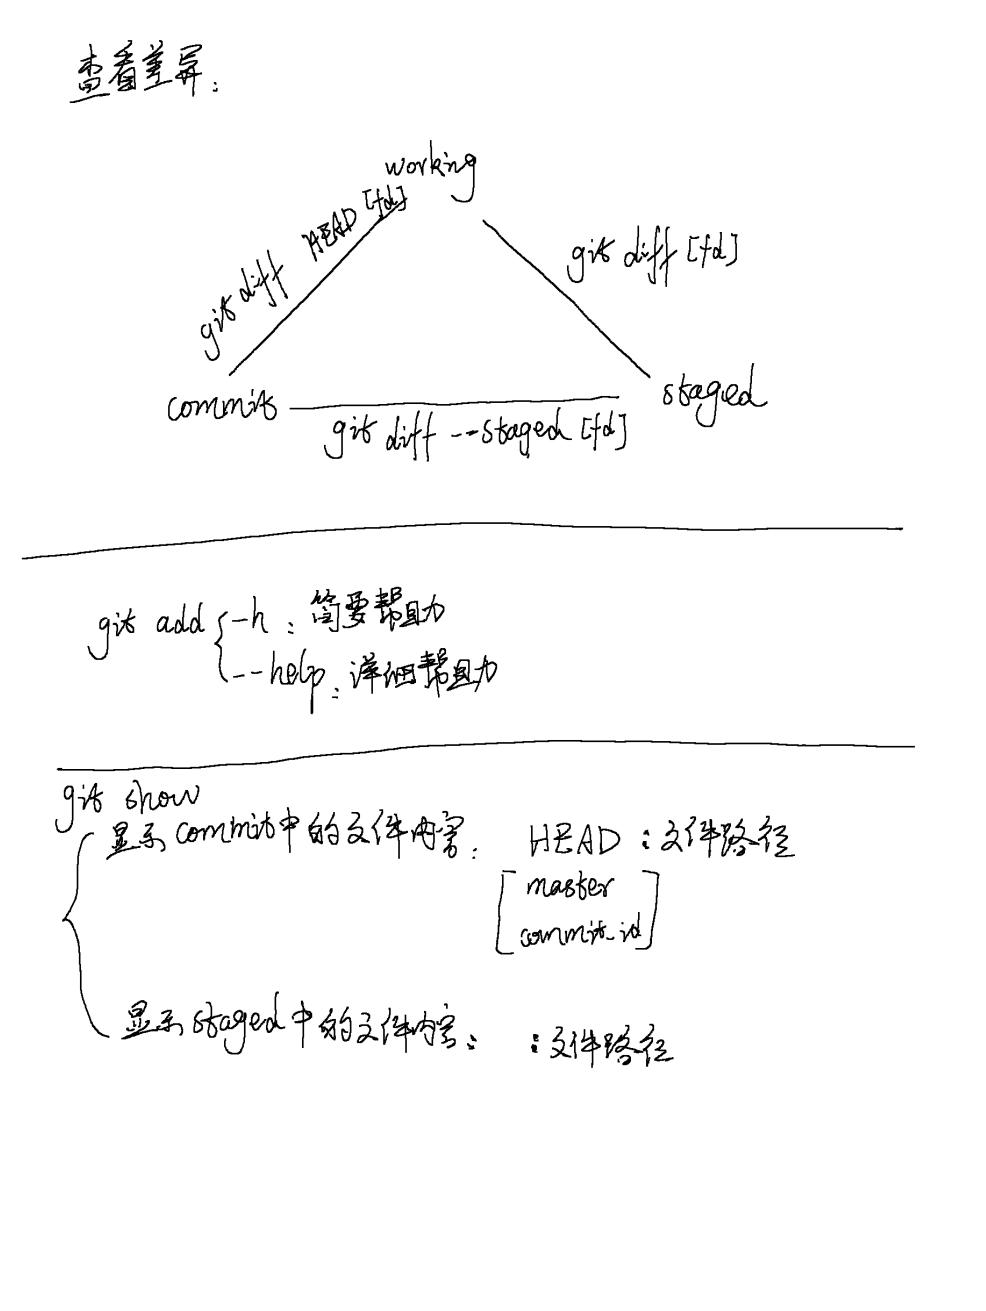 查看差异：
working
git diff HEAD [fd]
git diff [fd]
commit
staged
git diff --staged [fd]
git add
-h：简要帮助
--help：详细帮助
git show
显示commit中的文件内容： HEAD：文件路径
[master
commit_id]
显示staged中的文件内容： ：文件路径